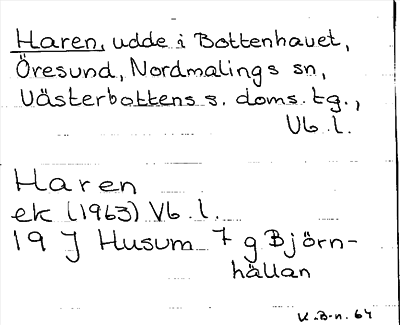 Haren, udde i Bottenhavet,
Öresund, Nordmalings sn,
Västerbottens s. doms. tg.,
Vb. l.
Haren
ek (1963) Vb. l.
19 J Husum 7 g Björn-
hällan
K.B-n. 64